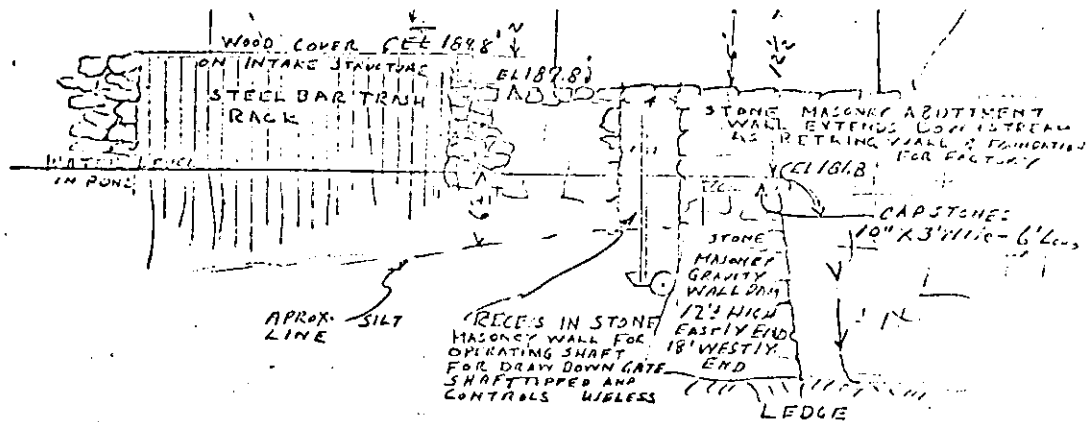 WOOD COVER
EL 169.8'
N
ON INTAKE STRUCTURE
STEEL BAR TRASH
RACK
EL 187.8
WATER LEVEL
IN POND
STONE MASONRY ABUTTMENT
WALL EXTENDS DOWNSTREAM
AS RETAING WALL & FOUNDATION
FOR FACTORY
EL 161.8
CAPSTONES
STONE
MASONRY
GRAVITY
WALL DAM
12'± HIGH
EASTLY END
18' WESTLY
END
APROX. SILT
LINE
RECESS IN STONE
MASONRY WALL FOR
OPERATING SHAFT
FOR DRAW DOWN GATE
SHAFT TIPPED AND
CONTROLS USELESS
LEDGE